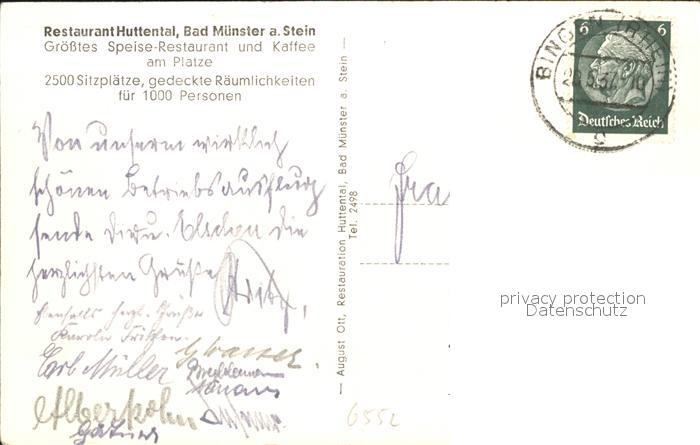 Restaurant Huttental, Bad Münster a. Stein
Größtes Speise-Restaurant und Kaffee
am Platze
2500 Sitzplätze, gedeckte Räumlichkeiten
für 1000 Personen
Von unserm wirklich
schönen Betriebsausflug
sende Dir u. die
herzlichsten Grüße
Fritz,
Ebenfalls herzl. Grüße
Karola
Carl Müller
— August Ott, Restauration Huttental, Bad Münster a. Stein —
Tel. 2498
BINGEN (RHEIN)
6 6
Deutsches Reich
Frau
privacy protection
Datenschutz
6552